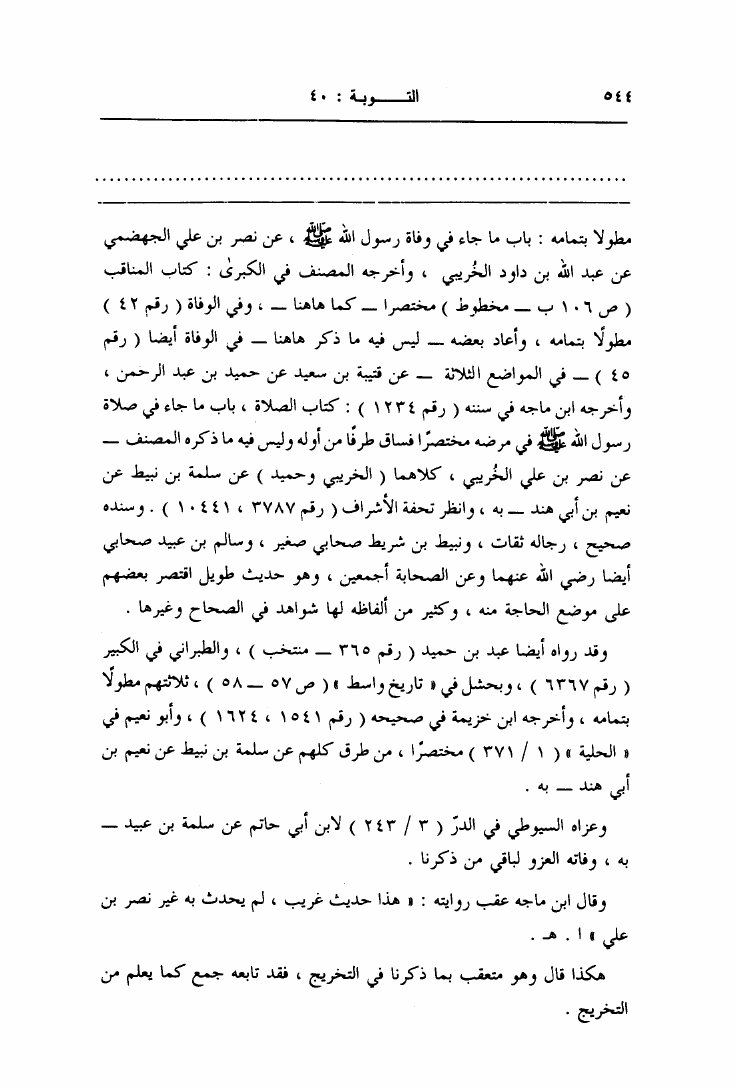 ٥٤٤ التـــــوبـة : ٤٠
مطولا بتمامه : باب ما جاء في وفاة رسول الله ﷺ ، عن نصر بن علي الجهضمي
عن عبد الله بن داود الخُريبي ، وأخرجه المصنف في الكبرىٰ : كتاب المناقب
( ص ١٠٦ ب — مخطوط ) مختصرا — كما هاهنا — ، وفي الوفاة ( رقم ٤٢ )
مطولًا بتمامه ، وأعاد بعضه — ليس فيه ما ذكر هاهنا — في الوفاة أيضا ( رقم
٤٥ ) — في المواضع الثلاثة — عن قتيبة بن سعيد عن حميد بن عبد الرحمن ،
وأخرجه ابن ماجه في سننه ( رقم ١٢٣٤ ) : كتاب الصلاة ، باب ما جاء في صلاة
رسول الله ﷺ في مرضه مختصرًا فساق طرفًا من أوله وليس فيه ما ذكره المصنف —
عن نصر بن علي الخُريبي ، كلاهما ( الخريبي وحميد ) عن سلمة بن نبيط عن
نعيم بن أبي هند — به ، وانظر تحفة الأشراف ( رقم ٣٧٨٧ ، ١٠٤٤١ ) . وسنده
صحيح ، رجاله ثقات ، ونبيط بن شريط صحابي صغير ، وسالم بن عبيد صحابي
أيضا رضي الله عنهما وعن الصحابة أجمعين ، وهو حديث طويل اقتصر بعضهم
على موضع الحاجة منه ، وكثير من ألفاظه لها شواهد في الصحاح وغيرها .
وقد رواه أيضا عبد بن حميد ( رقم ٣٦٥ — منتخب ) ، والطبراني في الكبير
( رقم ٦٣٦٧ ) ، وبحشل في « تاريخ واسط » ( ص ٥٧ — ٥٨ ) ، ثلاثتهم مطولًا
بتمامه ، وأخرجه ابن خزيمة في صحيحه ( رقم ١٥٤١ ، ١٦٢٤ ) ، وأبو نعيم في
« الحلية » ( ١ / ٣٧١ ) مختصرًا ، من طرق كلهم عن سلمة بن نبيط عن نعيم بن
أبي هند — به .
وعزاه السيوطي في الدرّ ( ٣ / ٢٤٣ ) لابن أبي حاتم عن سلمة بن عبيد —
به ، وفاته العزو لباقي من ذكرنا .
وقال ابن ماجه عقب روايته : « هذا حديث غريب ، لم يحدث به غير نصر بن
علي » ا . هـ .
هكذا قال وهو متعقب بما ذكرنا في التخريج ، فقد تابعه جمع كما يعلم من
التخريج .